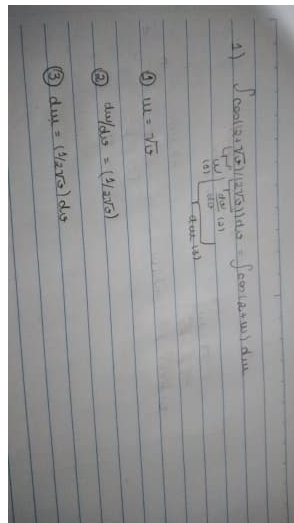 1) ∫cos(2+√v)/(2√v))dv = ∫cos(2+u) du
u dv (2)
(1) dv
du (3)
① u = √v
② du/dv = (1/2√v)
③ du = (1/2√v) dv